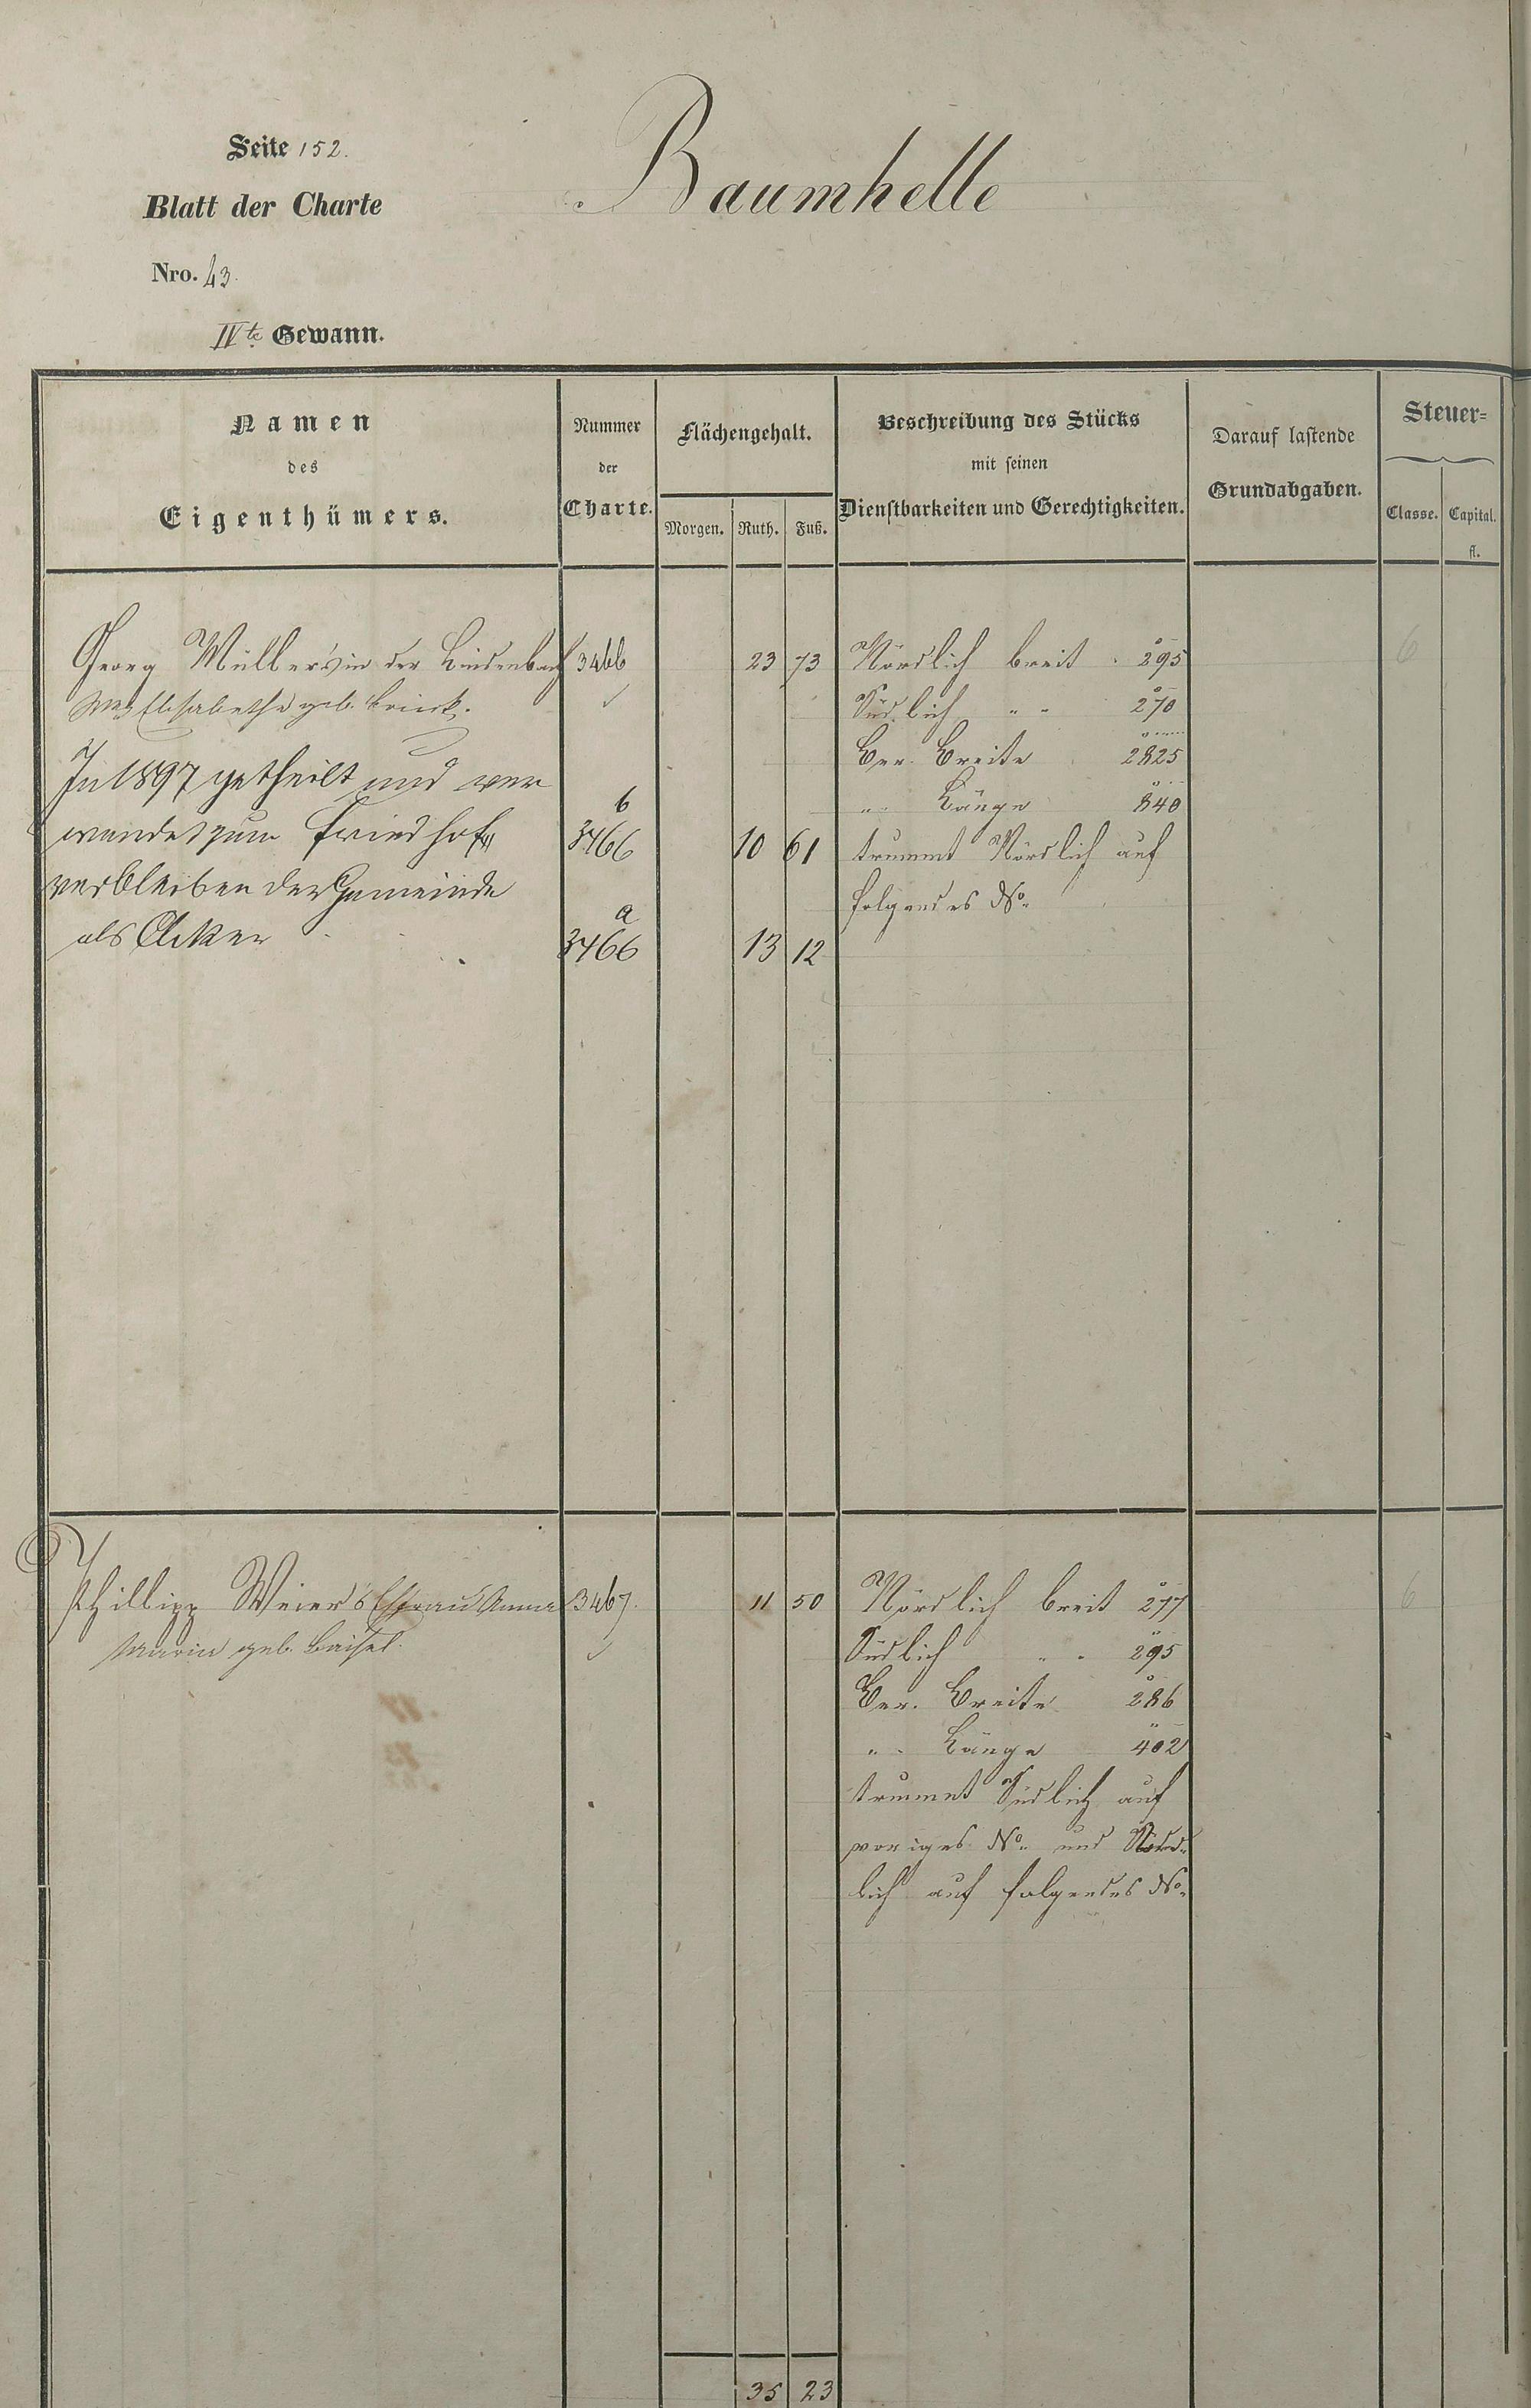 Seite 152.
Blatt der Charte
Nro. 43.
IVte Gewann.
Baumhelle
Namen
des
Eigenthümers.
Nummer
der
Charte.
Flächengehalt.
Morgen. Ruth. Fuß.
Beschreibung des Stücks
mit seinen
Dienstbarkeiten und Gerechtigkeiten.
Darauf lastende
Grundabgaben.
Steuer=
Classe. Capital.
fl.
Georg Müller's in der Lindenbach 3466 23 73 Nördlich breit 295 6
Elisabetha geb. Südlich " " 270
Ver. Breite 2825
In 1897 getheilt und ver
" Länge 840
b
wendet zum Friedhof 3466 10 61 trummt Nördlich auf
verbleiben der Gemeinde
folgendes No.
a
als Acker 3466 13 12
Phillipp Weier's Ehfrau Anna 3467. 11 50 Nördlich breit 277 6
Maria geb. Südlich " " 295
Ver. Breite 286
" Länge 402
trummt Südlich auf
voriges No. und Nörd-
lich auf folgendes No.
35 23